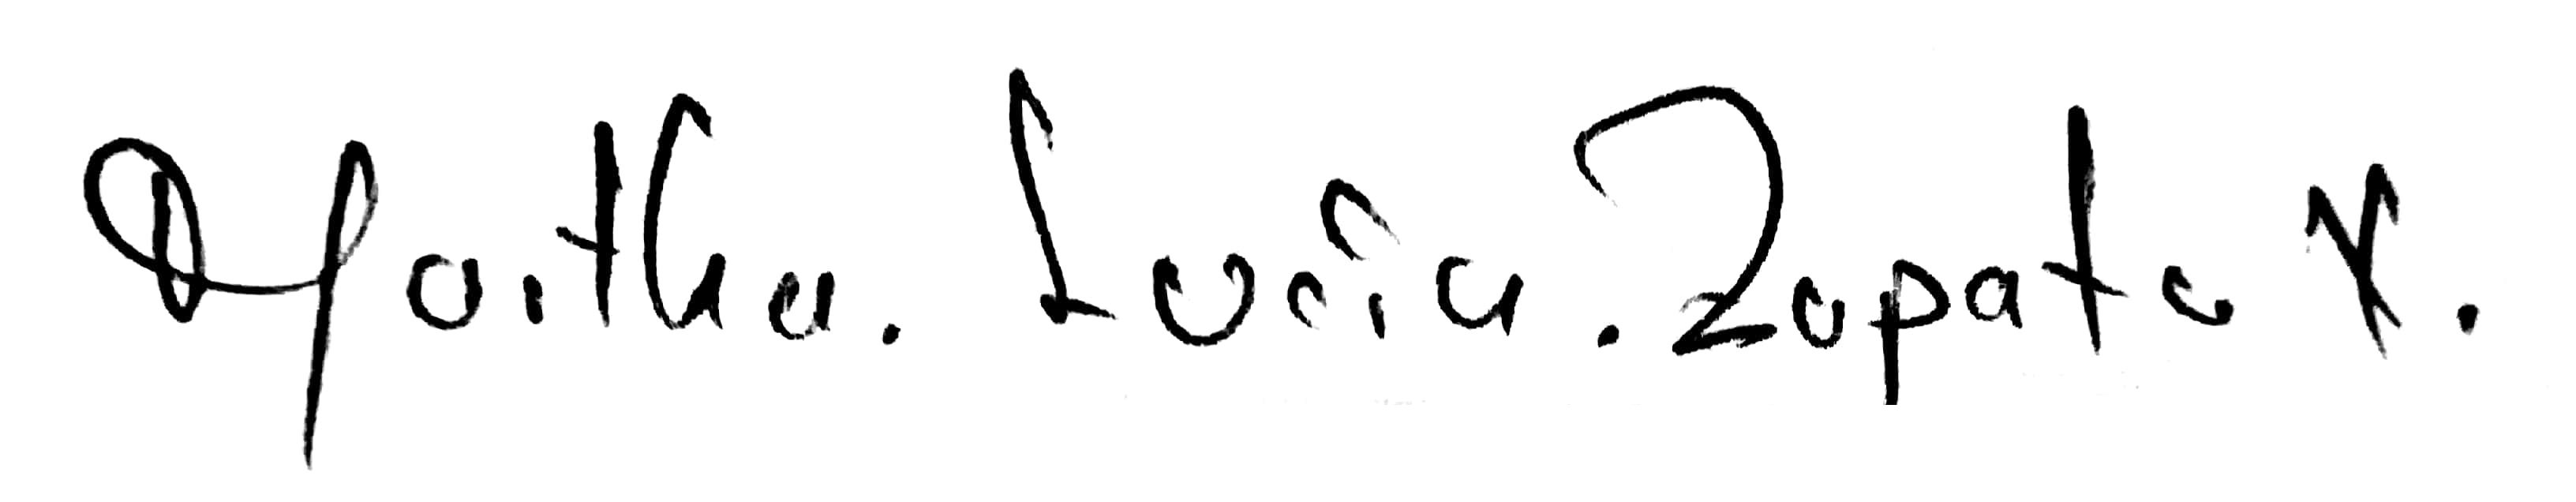 Martha. Lucia. Zapata V.